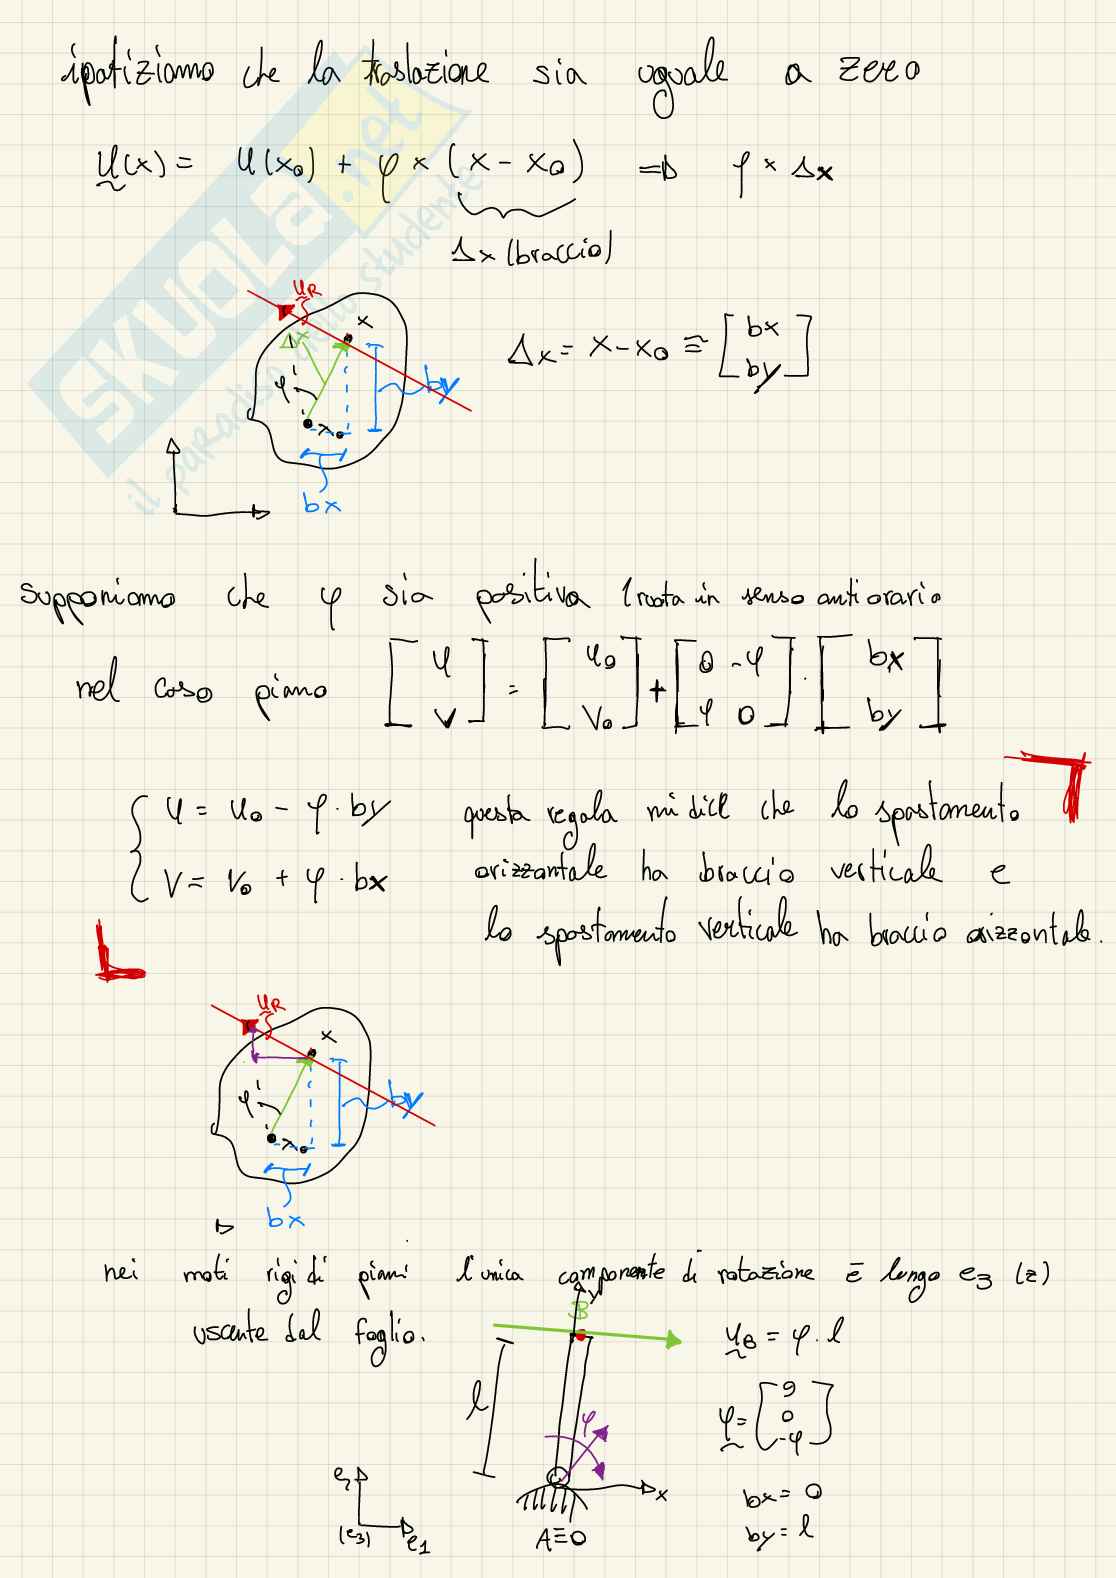 ipotiziamo che la traslazione sia uguale a zero
u(x) = u(x₀) + φ × (x - x₀) ⇒ φ × Δx
Δx (braccio)
u_R
x
Δx
φ
by
bx
Δx = x - x₀ ≅ [bx by]
SKUOLA.net
il paradiso dello studente
supponiamo che φ sia positiva (ruota in senso antiorario
nel caso piano [u v] = [u₀ v₀] + [0 -φ φ 0] · [bx by]
u = u₀ - φ · by
v = v₀ + φ · bx
questa regola mi dice che lo spostamento
orizzontale ha braccio verticale e
lo spostamento verticale ha braccio orizzontale.
u_R
x
φ
by
bx
nei moti rigidi piani l'unica componente di rotazione è lungo e3 (z)
uscente dal foglio.
y
B
u_B = φ · l
l
φ
φ = [0 0 -φ]
x
bx = 0
by = l
(e3)
e1
A≡O